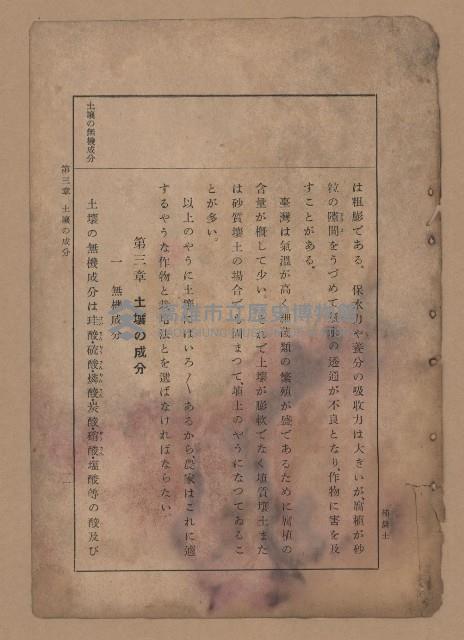 植壌土
は粗膨である。保水力や養分の吸收力は大きいが、腐植が砂
粒の隙間をうづめて の透通が不良となり、作物に害を及
すことがある。
臺灣は氣溫が高く細菌類の繁殖が盛であるために腐植の
含量が概して少い。 れで土壌が膨軟でなく埴質壌土また
は砂質壌土の場合 固まつて、埴土のやうになつてゐるこ
とが多い。
以上のやうに土壌 はいろ〱あるから、農家はこれに適
するやうな作物と栽培法とを選ばなければならない。
第三章 土壌の成分
一 無機成分
土壌の無機成分
土壌の無機成分は珪酸・硫酸・燐酸・炭酸・硝酸・塩酸等の酸及び
第三章 土壌の成分
高雄市立歷史博物館
KAOHSIUNG MUSEUM OF HISTORY